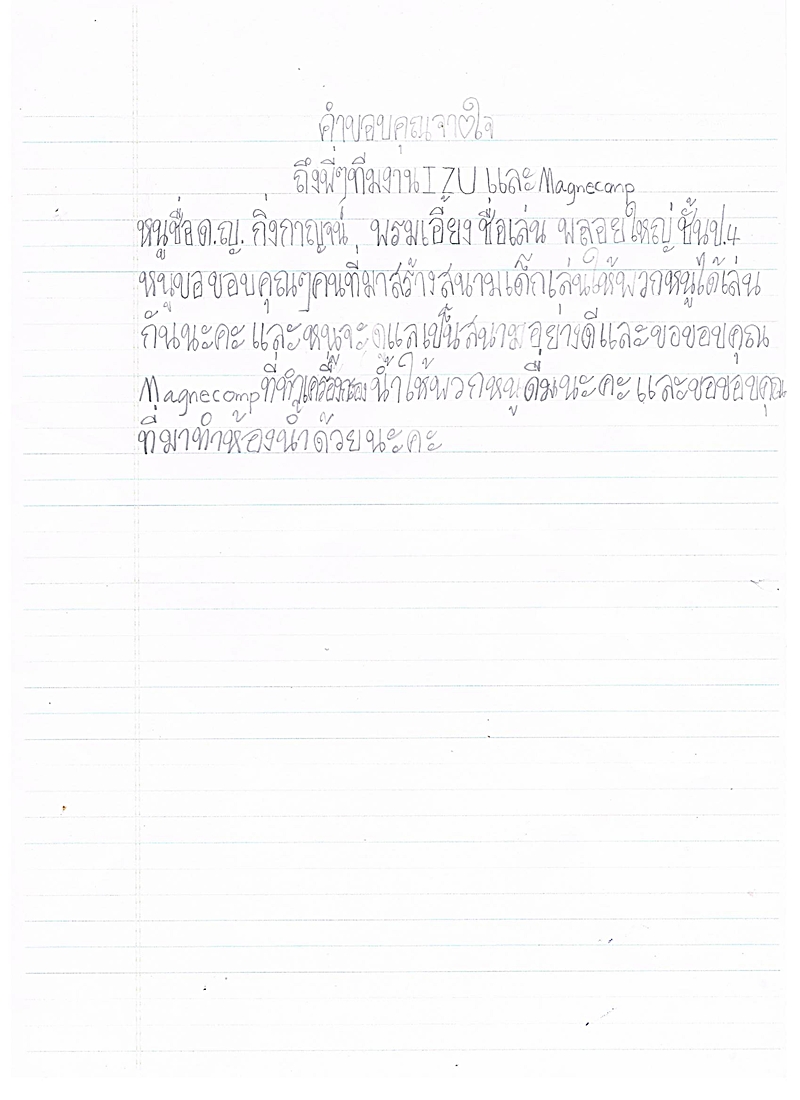 คำขอบคุณจากใจ
ถึงพี่ๆทีมงาน IZU และ Magnecomp
หนูชื่อด.ญ. กิ่งกาญจน์ พรมเอี้ยง ชื่อเล่น พลอยใหญ่ ชั้นป.4
หนูขอขอบคุณๆคนที่มาสร้างสนามเด็กเล่นให้พวกหนูได้เล่น
กันนะคะ และหนูจะดูแลเป็นสนามอย่างดีและขอขอบคุณ
Magnecomp ที่ทำเครื่องกรองน้ำให้พวกหนูดื่มนะคะ และขอขอบคุณ
ที่มาทำห้องน้ำด้วยนะคะ